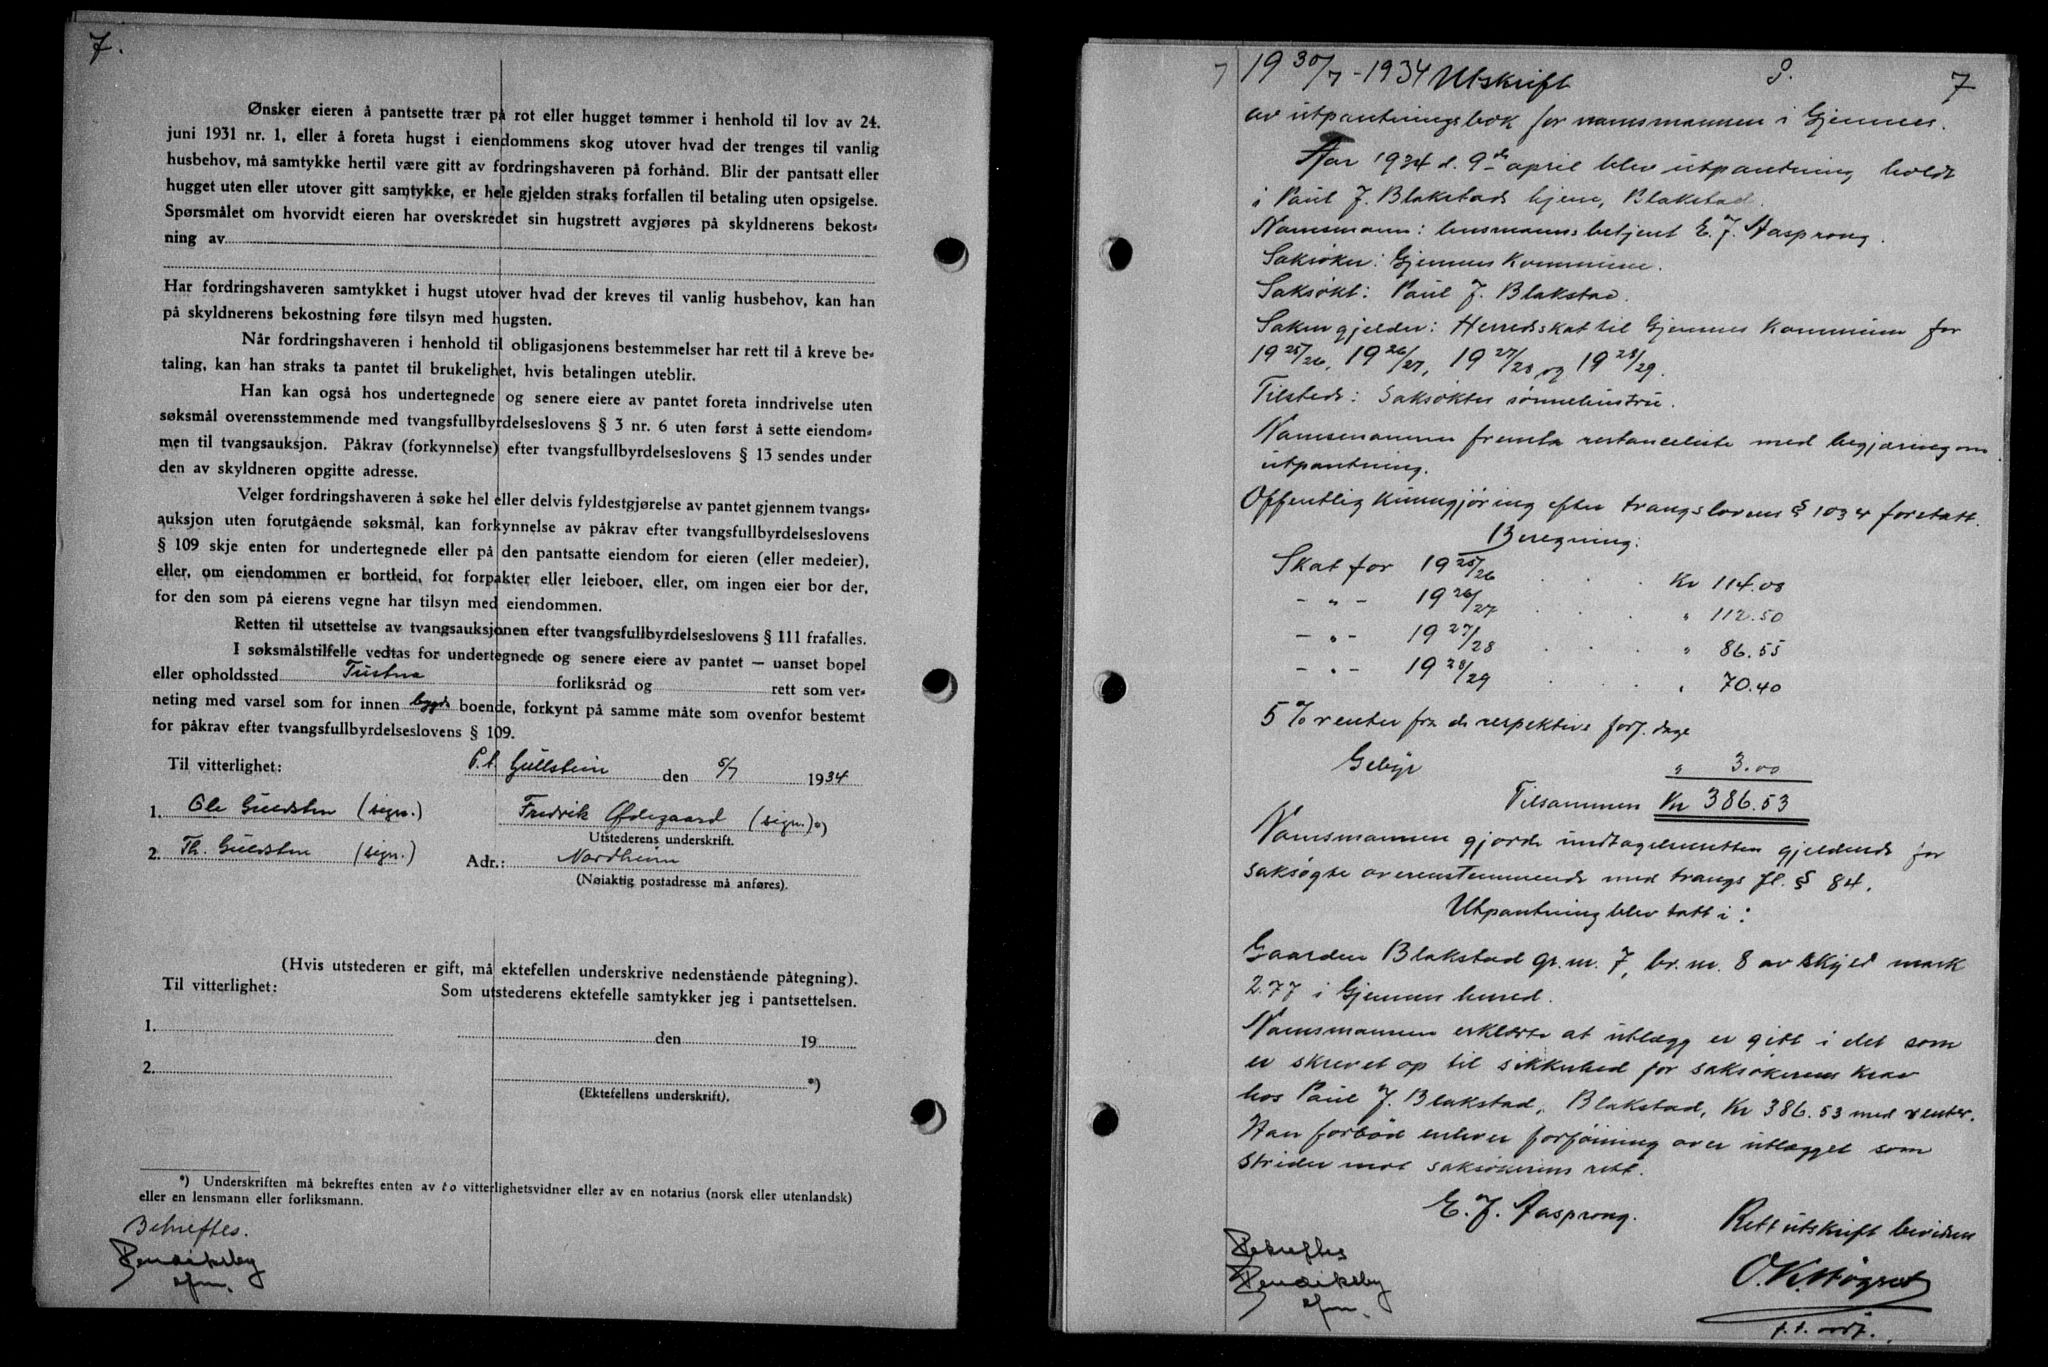 7.
Ønsker eieren å pantsette trær på rot eller hugget tømmer i henhold til lov av 24.
juni 1931 nr. 1, eller å foreta hugst i eiendommens skog utover hvad der trenges til vanlig
husbehov, må samtykke hertil være gitt av fordringshaveren på forhånd. Blir der pantsatt eller
hugget uten eller utover gitt samtykke, er hele gjelden straks forfallen til betaling uten opsigelse.
Spørsmålet om hvorvidt eieren har overskredet sin hugstrett avgjøres på skyldnerens bekost-
ning av
Har fordringshaveren samtykket i hugst utover hvad der kreves til vanlig husbehov, kan han
på skyldnerens bekostning føre tilsyn med hugsten.
Når fordringshaveren i henhold til obligasjonens bestemmelser har rett til å kreve be-
taling, kan han straks ta pantet til brukelighet, hvis betalingen uteblir.
Han kan også hos undertegnede og senere eiere av pantet foreta inndrivelse uten
søksmål overensstemmende med tvangsfullbyrdelseslovens § 3 nr. 6 uten først å sette eiendom-
men til tvangsauksjon. Påkrav (forkynnelse) efter tvangsfullbyrdelseslovens § 13 sendes under
den av skyldneren opgitte adresse.
Velger fordringshaveren å søke hel eller delvis fyldestgjørelse av pantet gjennem tvangs-
auksjon uten forutgående søksmål, kan forkynnelse av påkrav efter tvangsfullbyrdelseslovens
§ 109 skje enten for undertegnede eller på den pantsatte eiendom for eieren (eller medeier),
eller, om eiendommen er bortleid, for forpakter eller leieboer, eller, om ingen eier bor der,
for den som på eierens vegne har tilsyn med eiendommen.
Retten til utsettelse av tvangsauksjonen efter tvangsfullbyrdelseslovens § 111 frafalles.
I søksmålstilfelle vedtas for undertegnede og senere eiere av pantet — uanset bopel
eller opholdssted Tustna forliksråd og rett som ver-
neting med varsel som for innen bygds boende, forkynt på samme måte som ovenfor bestemt
for påkrav efter tvangsfullbyrdelseslovens § 109.
Til vitterlighet: P.t. Gullstein den 5/7 1934
1. Ole Guldsten (sign.) Fredrik Ødegaard (sign.) *)
Utstederens underskrift.
2. Th. Guldsten (sign.) Adr.: Nordheim
(Nøiaktig postadresse må anføres).
(Hvis utstederen er gift, må ektefellen underskrive nedenstående påtegning).
Til vitterlighet: Som utstederens ektefelle samtykker jeg i pantsettelsen.
1. den 19
2. *)
(Ektefellens underskrift).
*) Underskriften må bekreftes enten av to vitterlighetsvidner eller av en notarius (norsk eller utenlandsk)
eller en lensmann eller forliksmann.
Bekreftes.
7 19 30/7 - 1934 Utskrift 7
av utpantningsbok for namsmannen i Gjemnes.
Aar 1934 d. 9de april blev utpantning holdt
i Paul J. Blakstads hjem, Blakstad.
Namsmann: lensmannsbetjent E. J. Aasprong.
Saksøker: Gjemnes Kommune.
Saksøkt: Paul J. Blakstad.
Saken gjelder: Herredsskat til Gjemnes Kommune for
19 25/26, 19 26/27, 19 27/28 og 19 28/29.
Tilstede: Saksøktes sønnehustru.
Namsmannen fremla restanceliste med begjæring om
utpantning.
Offentlig kunngjøring efter tvangslovens § 1034 foretatt.
Beregning:
Skat for 19 25/26 . . . Kr 114.08
- " - 19 26/27 . . . " 112.50
- " - 19 27/28 . . . " 86.55
- " - 19 28/29 . . . " 70.40
5 % renter fra de respektive forf. dage
Gebyr " 3.00
Tilsammen Kr 386.53
Namsmannen gjorde undtagelsesretten gjeldende for
saksøgte overenstemmende med tvangs fl. § 84.
Utpantning blev tatt i:
Gaarden Blakstad gr. nr. 7, br. nr. 8 av skyld mark
2.77 i Gjemnes herred.
Namsmannen erklærte at utlægg er gitt i det som
er skrevet op til sikkerhed for saksøkerens krav
hos Paul J. Blakstad, Blakstad, Kr 386.53 med renter.
Han forbød enhver forføining over utlegget som
strider mot saksøkerens rett.
E. J. Aasprong.
Rett utskrift bevidnes
Bekreftes